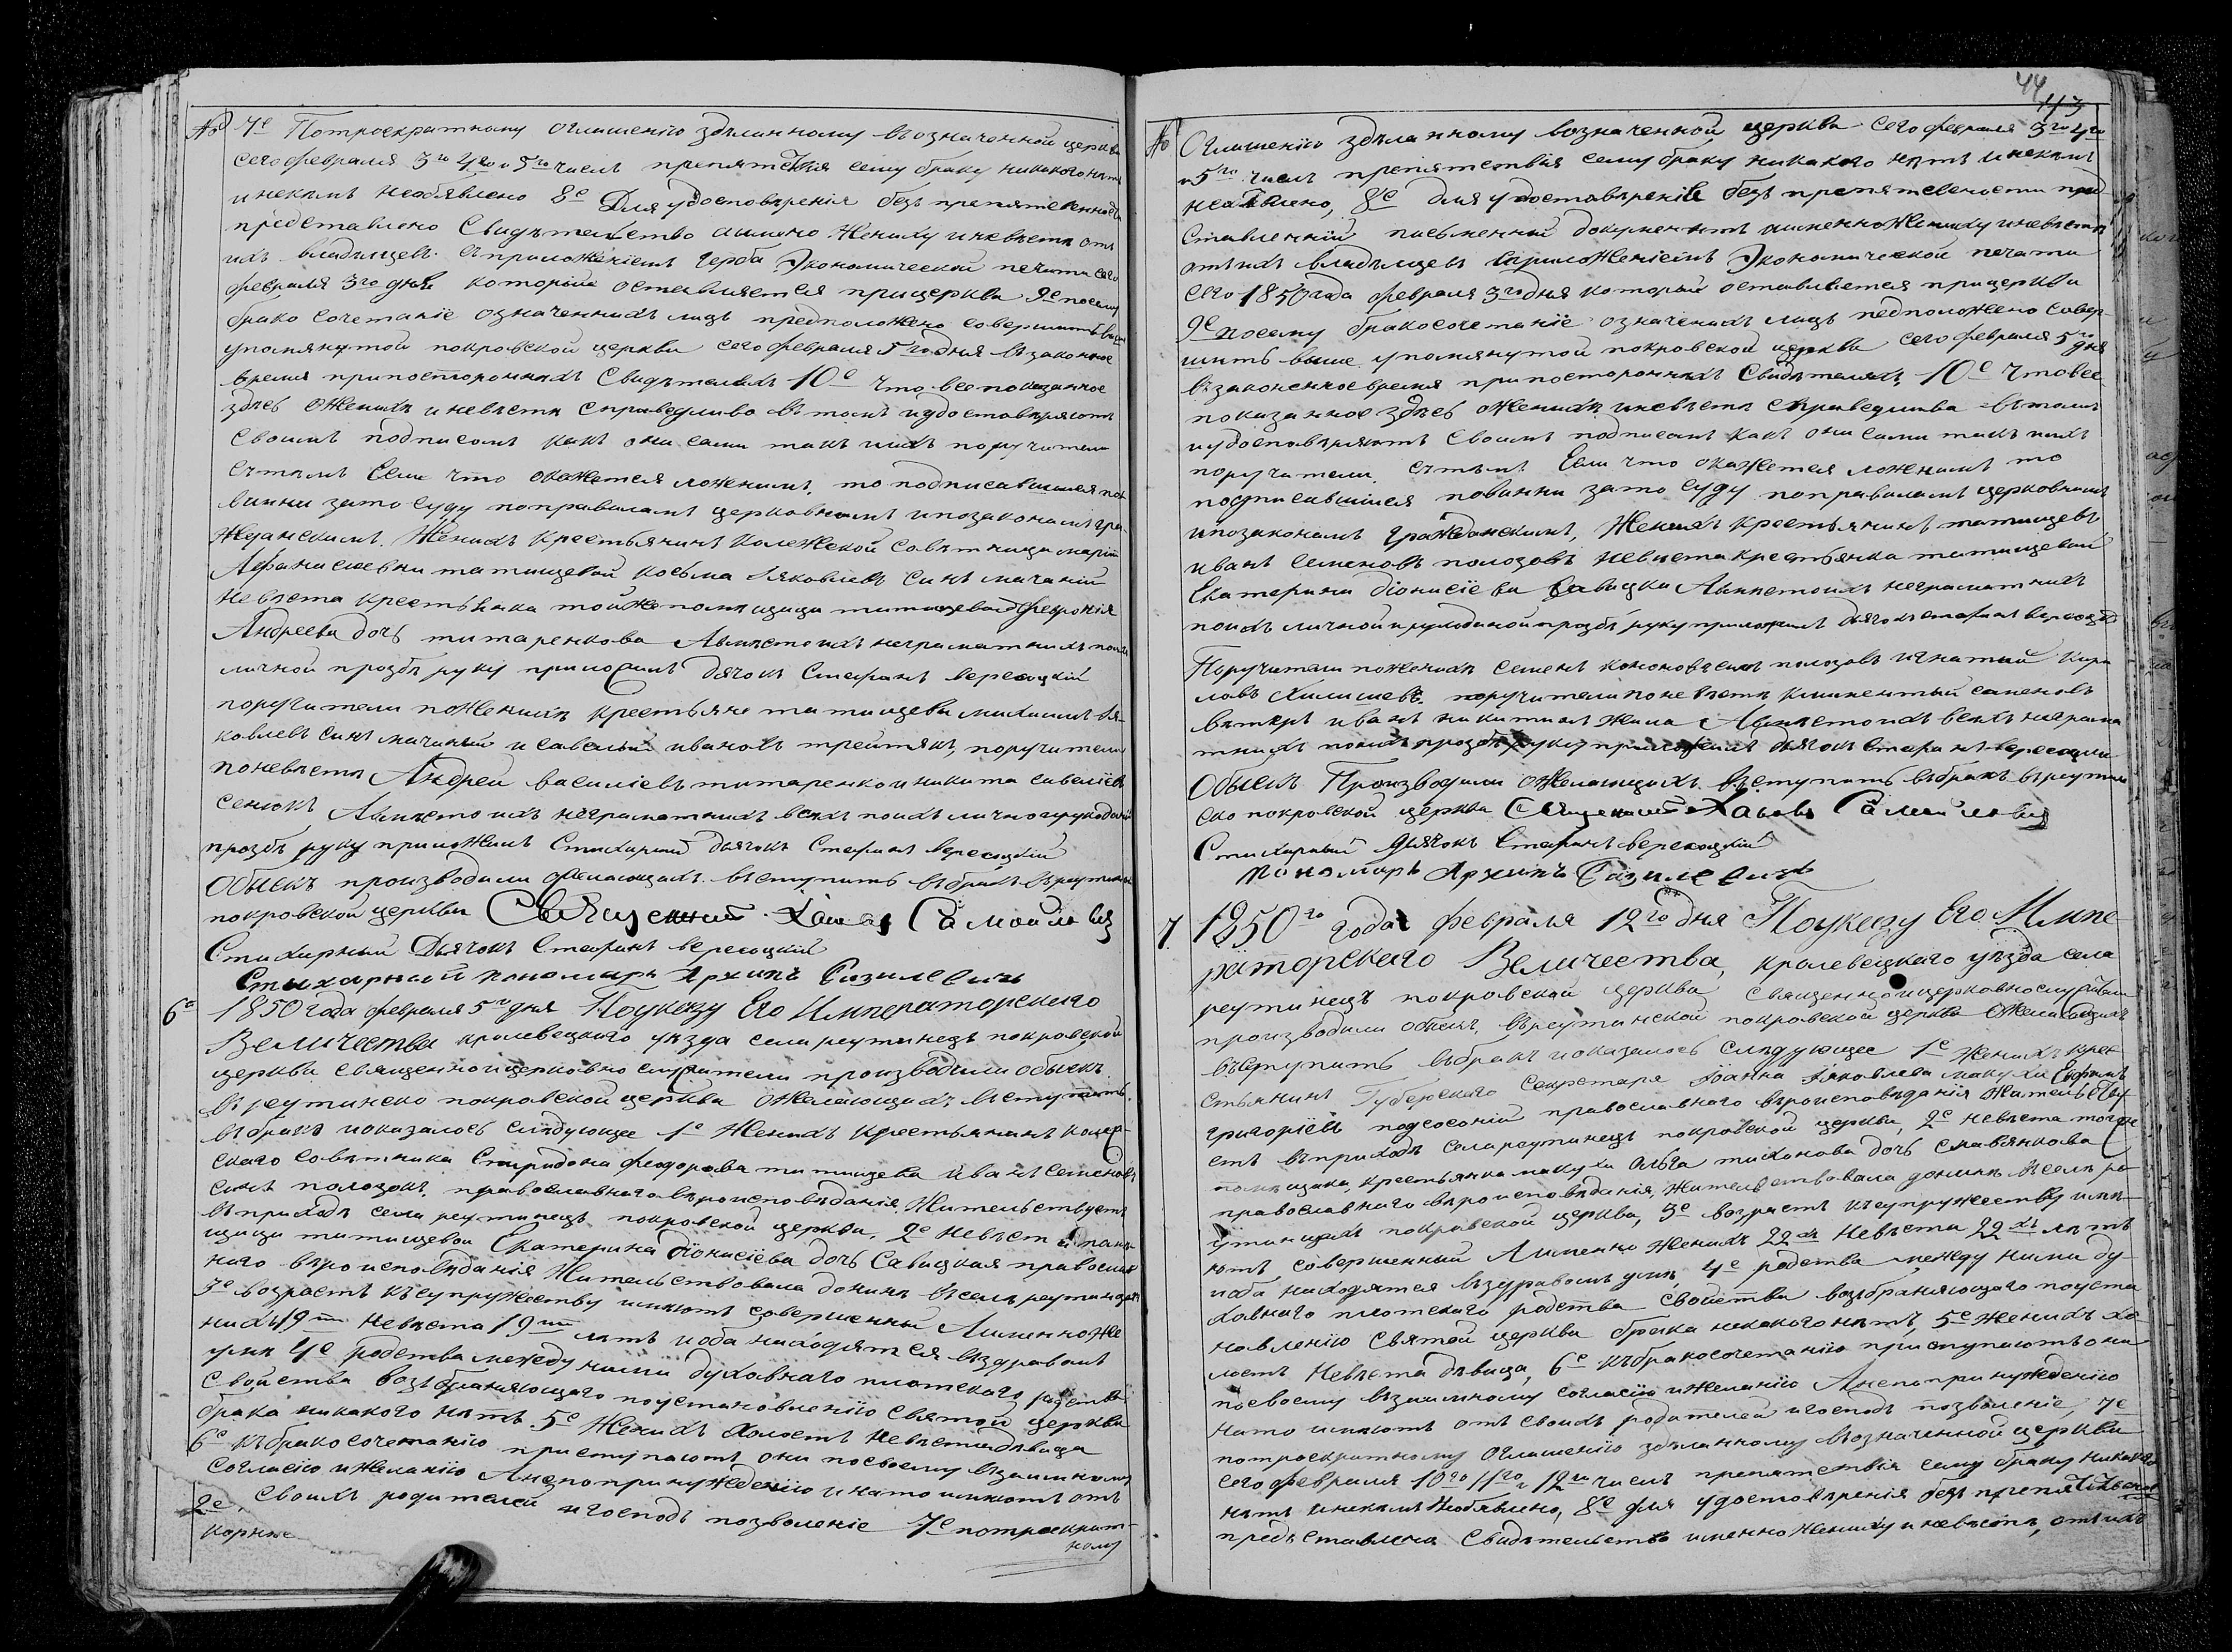 № 7е Потроекратному оглашенію здѣланному въозначенной церкви
сего февраля 3го 4го и 5го числ препятствія сему браку никакого нетъ
инекимъ необявлено 8е Для удостовѣренія безъ препятственности
представлено Свидѣтельство имено Жениху иневѣсти отъ
ихъ владѣлцев съприложеніемъ герба Экономической печати сего
февраля 3го дня которые оставляется прицеркви 9е посему
брако сочетаніе означенныхъ лицъ предположено совершить въ
упомянутой покровской церкви сего февраля 5го дня взаконное
время припосторонныхъ Свидѣтелехъ 10е Что все показанное
здѣсь оЖенихѣ иневѣсти справедливо въ томъ иудостовѣряютъ
своимъ подписомъ какъ они сами такъ иихъ поручители
стѣмъ Если что окажется ложнимъ, то подписавшиеся по-
винни зато суду поправиламъ церковнимъ ипозаконамъ гра-
жданскимъ. Женихъ Крестьянинъ Колежской Совѣтници маріи
Афанасіевни татищевой косьма Яковлевъ синъ мачаній
Невѣста крестьянка тойже помѣщици татищевой Феѳронія
Андреева дочь титаренкова Авмѣсто ихъ неграматнихъ поихъ
личной прозбѣ руку приложилъ дьячокъ Стефанъ вересоцкій
поручители поЖенихѣ крестьяне татищеви михаилъ Я-
ковлевъ синъ мачаній и савелій ивановъ третякъ, поручители
поневѣсти Андрей василіевъ титаренко иникита савеліевъ
сенюкъ Авмѣсто ихъ неграматнихъ всехъ поихъ лично-рукоданой
прозбѣ руку приложилъ Стихарный дьячокъ Стефанъ вересоцкій
Обыскъ производили оЖелающихъ въступить въбракъ вреутинской
покровской церкви Священникъ Самойлович
Стихарный Дьячокъ Стефанъ вересоцкій
Стихарный пономарь Архипъ Базилевичъ
6й 1850 года февраля 5го дня Поуказу Его Императорского
Величества кролевецкого уѣзда села реутинецъ покровской
церкви священноицерковно служители производили обыскъ
въреутинско покровской церкви оЖелающихъ въступить
въбракъ ипоказалось слѣдующее 1е Женихъ Крестьянинъ
ского Совѣтника Спиридона Феодорова татищева иванъ Семеновъ
синъ полозокъ, православнаго вѣроисповѣданія Жительствуетъ
въприходѣ села реутинецъ покровской церкви. 2е Невѣста помѣ-
щици татищевой Екатерина діонисіева дочь Савицкая православ-
наго вѣроисповѣданія Жительствовала донинѣ вселѣ реутинцахъ
3е возрастъ ксупружеству имѣютъ совершенный Аименно Же-
нихъ 19ти Невѣста 19ти лѣтъ иоба находятся вздравомъ
умѣ 4е родства между ними духовнаго плотскаго родства
свойства возбраняющаго поустановленію святой церкви
брака никакого нетъ 5е Женихъ Холостъ Невѣста дѣвица
6е Къбракосочетанію приступаютъ они посвоему взаимному
Согласію иЖеланію Анепопринужденію инато имѣютъ отъ
своихъ родителей игосподъ позволеніе 7е потроекрат-
ному
2е
корнже
44
№ Оглашенію зделанному возначенной церкви сего февраля 3го 4го
и 5го числ препятствія сему браку никакого нѣтъ инекимъ
необявлено, 8е для удоставѣреніе безъ препятствености пред
ставленній писменній документъ именно Жениху иневѣсти
отъихъ владѣлцев сприложеніемъ Экономической печати
Сего 1850 года февраля 3го дня которой оставляется прицеркви
9е посему бракосочетаніе означеныхъ лицъ педположено совер
шить выше упомянутой покровской церкви сего февраля 5го дня
взаконенное время припосторонихъ Свидѣтеляхъ 10е Что все
показанное здѣсь оЖенихѣ иневѣсти справедлива въ томъ
иудостовѣряютъ своимъ подписомъ какъ они сами такъ иихъ
поручители. стѣмъ Если что окажется ложнимъ то
подписавшиеся повинни зато суду поправиламъ церковнимъ
ипозаконамъ гражданскимъ, Женихъ Крестьянинъ татищевъ
иванъ Семеновъ полозовъ невѣста крестьянка татищевой
Екатерина діонисіева Савицка Авмѣстоихъ неграматнихъ
поихъ личной ирукоданой прозбѣ руку приложилъ дьячокъ стефанъ вересоцкій
Поручители поженихѣ семенъ полозовъ игнатій Кири
ловъ поручители поневѣсти климентій семеновъ
иванъ никитинъ Авмѣсто ихъ всехъ неграма
тнихъ поихъ прозбѣ руку приложилъ дьячокъ Стефанъ вересоцкій
Обыскъ Производили оЖелающихъ въступить въбракъ вреутин
ско покровской церкви Священникъ Самойлович
Стихарный Дьячокъ Стефанъ вересоцкій
Пономарь Архипъ Базилевичъ
7 1850го года февраля 12го дня Поуказу Его Импе
раторскаго Величества, кролевецкаго уѣзда села
реутинецъ покровской церкви священноицерковнослужители
производили обыскъ, въреутинской покровской церкви оЖелающихъ
въступить въбракъ ипоказалось слѣдующее 1е Женихъ кре-
стьянинъ Губерского Секретаря Іоанна Яковлева макухи
григоріевъ православнаго вѣроисповѣданія Жительству-
етъ въприходѣ села реутинецъ покровской церкви, 2е невѣста тогоже
помѣщика, крестьянка макухи Ольга тихонова дочь
православнаго вѣроисповѣданія, Жительствовала донинѣ вселѣ ре-
утинцахъ покровской церкви, 3е возрастъ ксупружеству имѣ-
ютъ совершенный Аименно Женихъ 22хъ Невѣста 22хъ лѣтъ
иоба находятся вздравомъ умѣ, 4е родства между ними ду-
ховнаго плотскаго родства свойства возбраняющаго поуста
новленію святой церкви брака никакого нѣтъ, 5е Женихъ хо-
лостъ Невѣста дѣвица, 6е Къбракосочетанію приступаютъ они
посвоему взаимному согласію иЖеланію Анепопринужденію
инато имѣютъ отъ своихъ родителей игосподъ позволеніе, 7е
потроекратному оглашенію зделанному въозначенной церкви
сего февраля 10го 11го и 12го числ препятствія сему браку никакого
нѣтъ инекимъ Необявлено, 8е для удостовѣренія безъ
представлена Свидѣтельство именно Жениху иневѣсти, отъихъ